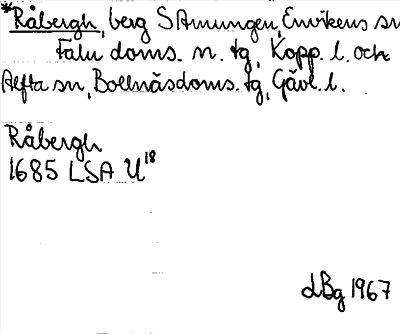 *Råbergh, berg SAmungen, Envikens sn
Falu doms. n. tg, Kopp. l. och
Alfta sn, Bollnäsdoms. tg, Gävl. l.
Råbergh
1685 LSA U18
dBg 1967